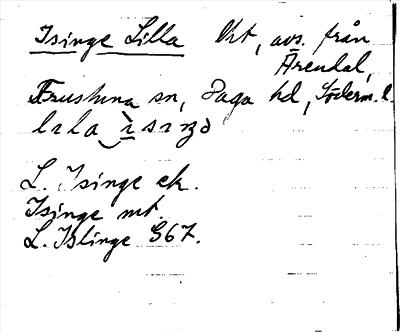 Isinge Lilla Urt, avs. från
Ärendal,
Frustuna sn, Daga hd, Söderm. l.
lıla ‿ ìsıŋə
L. Isinge ek.
Isinge mt.
L. Islinge G67.